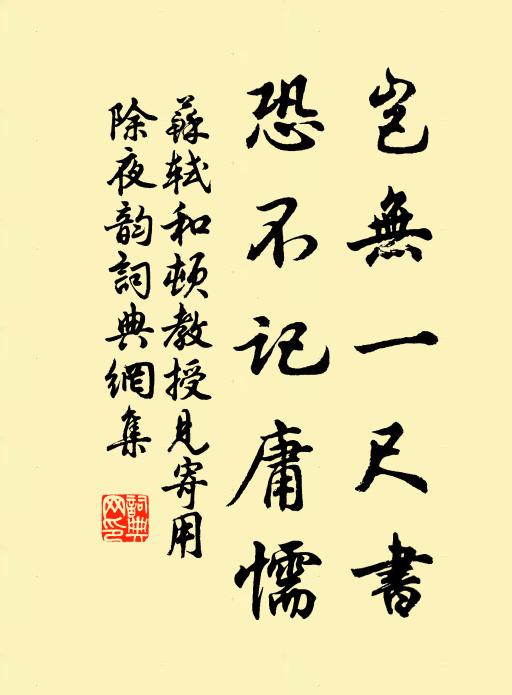 豈無一尺書
恐不記庸懦
蘇軾和頓教授見寄用
除夜韵詞典網集
詞典網印